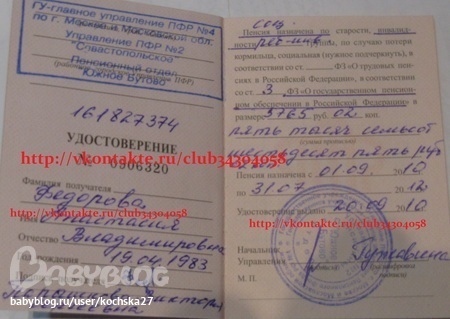 ГУ-главное управление ПФР №4
по г. Москве и Московской обл.
Управление ПФР №2
"Севастопольское
Пенсионный отдел
Южное Бутово
161827374
УДОСТОВЕРЕНИЕ
http://vkontakte.ru/club34304058
№ 0906320
Фамилия получателя
Федорова
Имя Анастасия
http://vkontakte.ru/club34304058
Отчество Владимировна
рождения 19.04.1983
BABYBLOG
babyblog.ru/user/kochska27
соц.
Пенсия назначена по старости, инвалид-
ности реб-инв, по случаю потери
кормильца, социальная (нужное подчеркнуть), в
соответствии со ст. ФЗ «О трудовых пен-
сиях в Российской Федерации», в соответствии
со ст. 3 ФЗ «О государственном пенсион-
ном обеспечении в Российской Федерации» в
размере 5765 руб. 02 к.
пять тысяч семьсот
http://vkontakte.ru/club34304058
(сумма прописью)
шестьдесят пять руб
Пенсия назначена с 01.09. 2010
по 31.07 2012
Удостоверение выдано 20.09 2010
http://vkontakte.ru/club34304058
Начальник
Управления
М. П.